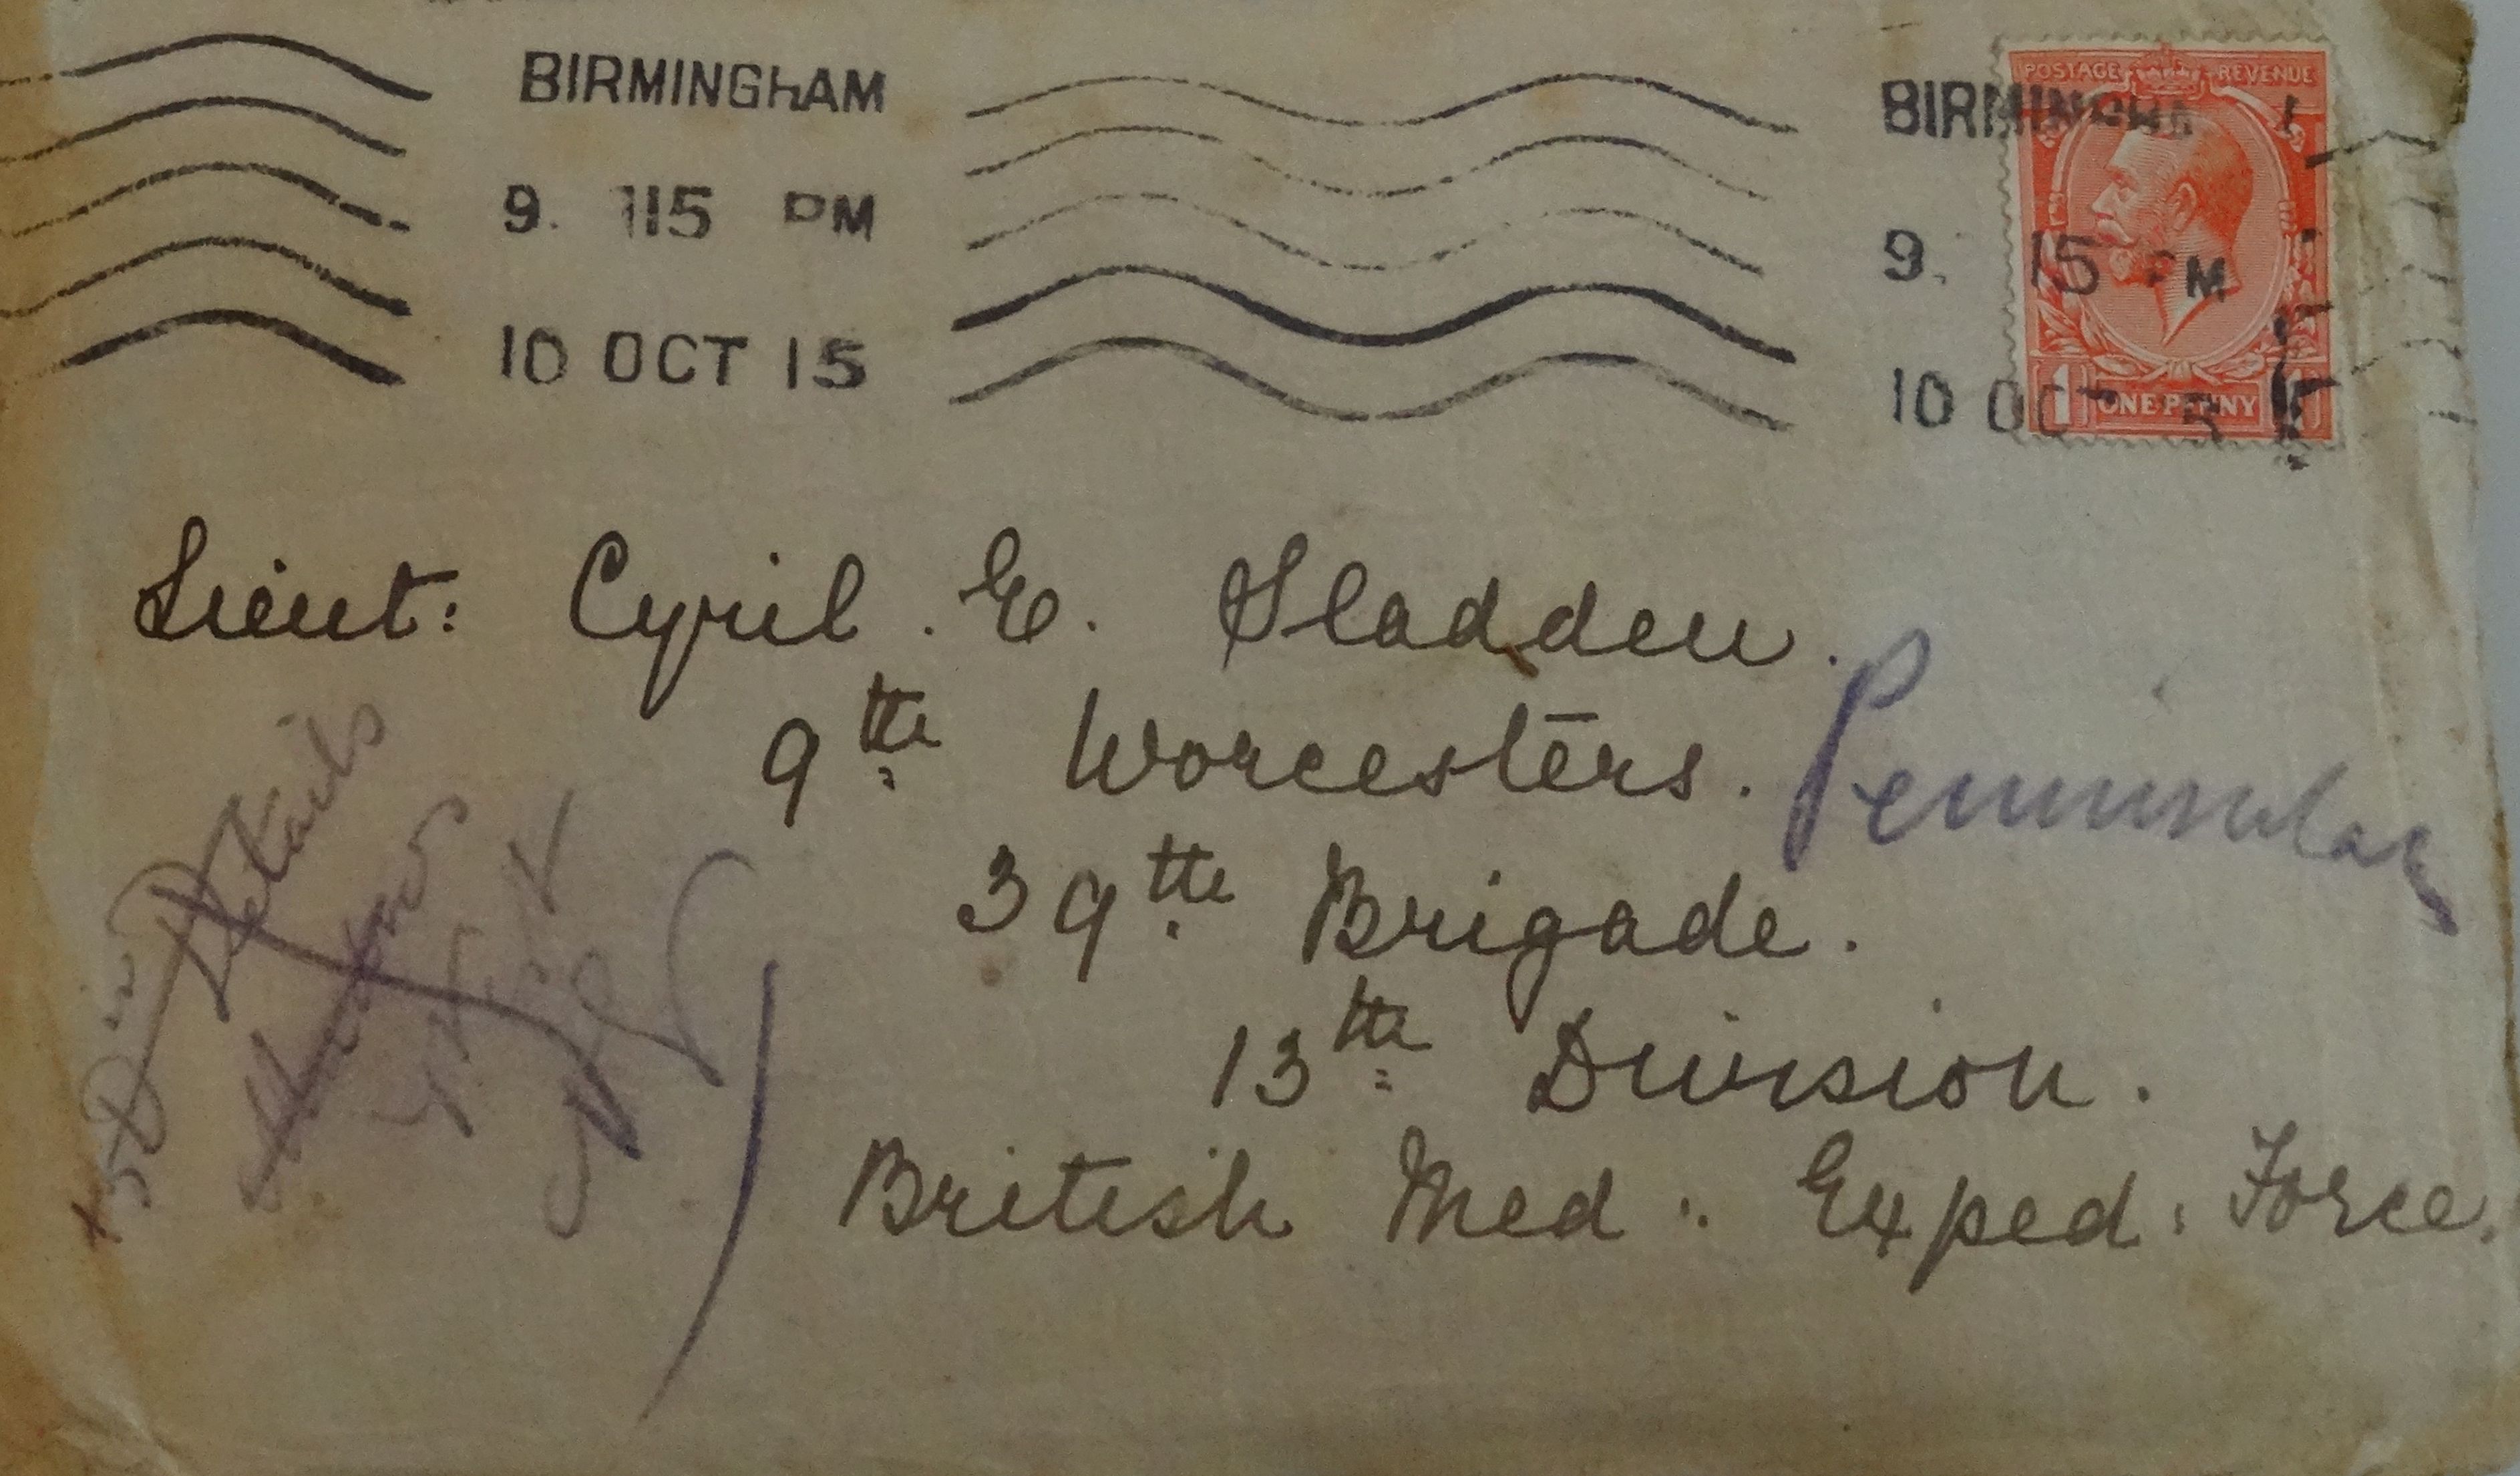 BIRMINGHAM
9. 115 PM
10 OCT 15
BIRMINGHAM
9. 15 PM
10 OCT 15
POSTAGE REVENUE
1 ONE PENNY 1
Lieut: Cyril. E. Sladden.
9th Worcesters.
Peninsular
39th Brigade.
13th Division.
British Med: Exped: Force.
Details